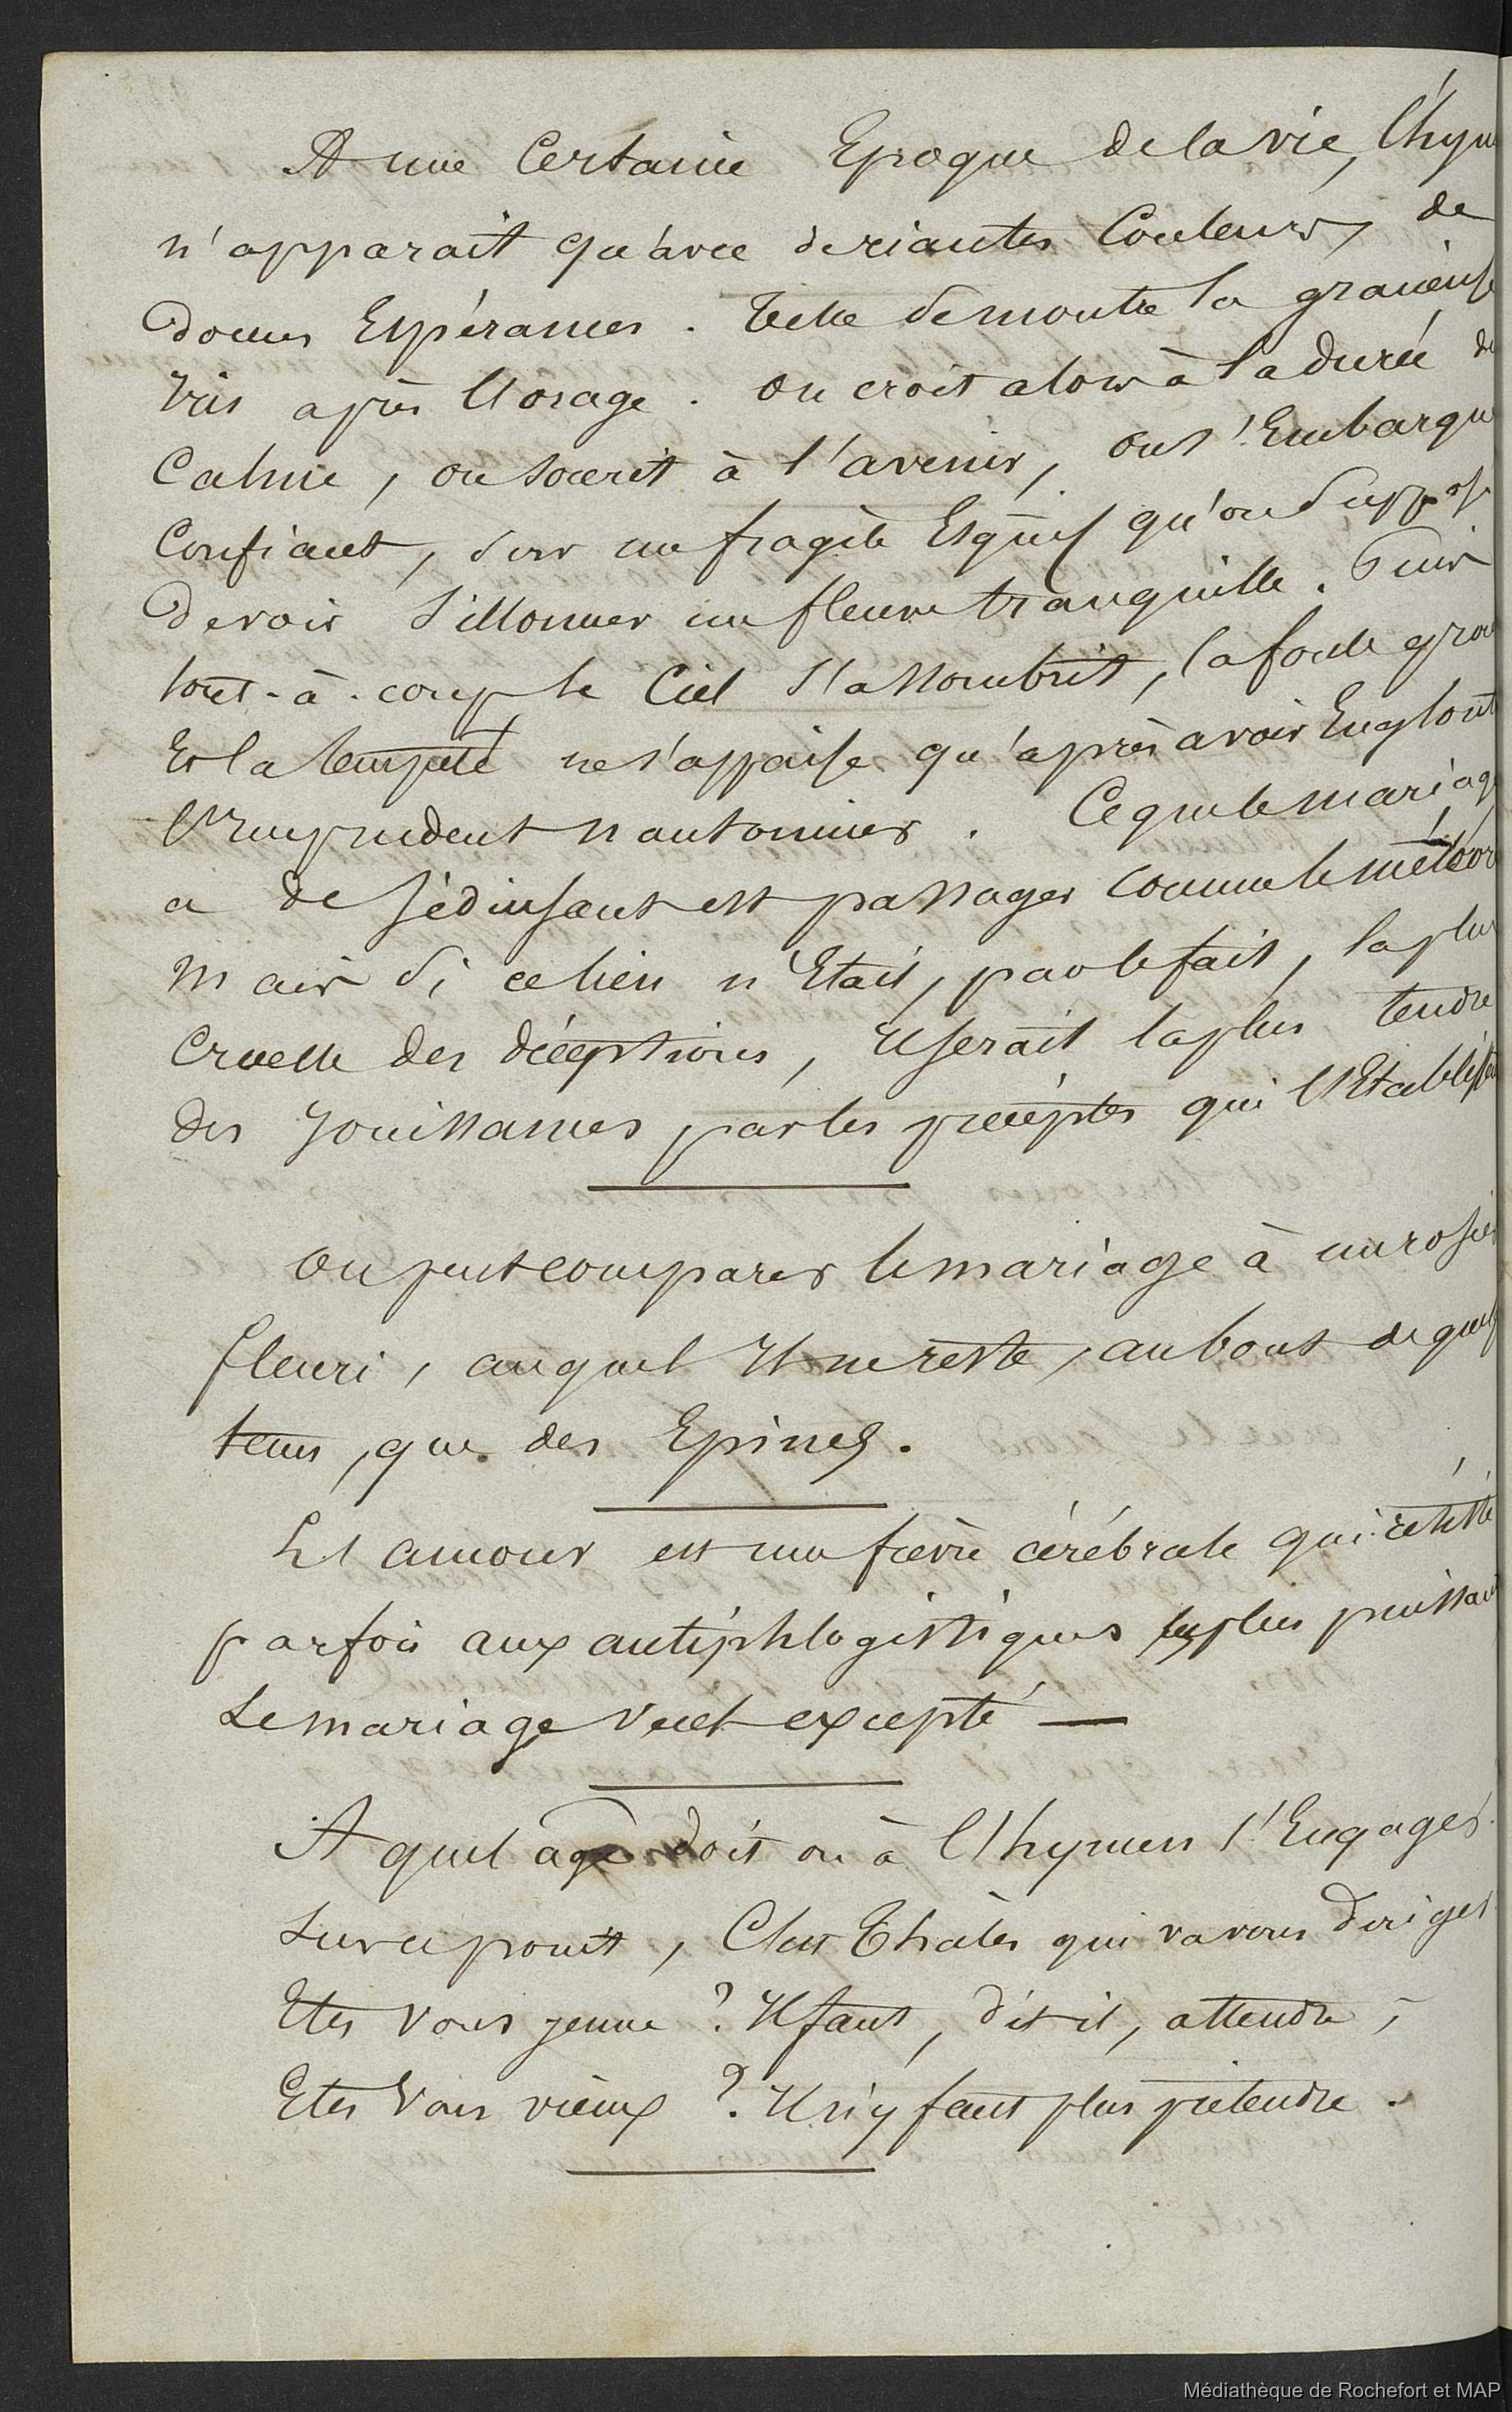 A une Certaine Epoque de la vie, l'hym
n'apparait qu'avec de riantes Couleurs, de
douces Espérances. Telle se montre la gracieuse
Iris après l'orage. On croit alors à la durée du
Calme, on sourit à l'avenir, on s'Embarque
Confiant, sur un fragile Esquif qu'on suppose
devoir sillonner un fleuve tranquille. Puis
tout-à-coup le Ciel s'assombrit, la foudre gron
Et la tempête ne s'appaise qu'après avoir Englouti
l'Imprudent nautonnier. Ce que le mariage
a de séduisant est passager comme le météor
Mais si ce lien n'Etait, par le fait, la plus
Cruelle des déceptions, Il serait la plus tendre
des Jouissances par les préceptes qui l'Etablissen
On peut comparer le mariage à un rosier
fleuri, auquel Il ne reste, au bout de quelq
tems, que des Epines.
L'amour est une fièvre cérébrale qui résiste
parfois aux antiphlogistiques les plus puissan
Le mariage seul excepté —
A quel age doit on à l'hymen s'Engager
Sur ce point, C'est Thalès qui va vous diriger
Etes vous jeune ? Il faut, dit-il, attendre ;
Etes Vous vieux ? Il n'y faut plus prétendre.
Médiathèque de Rochefort et MAP